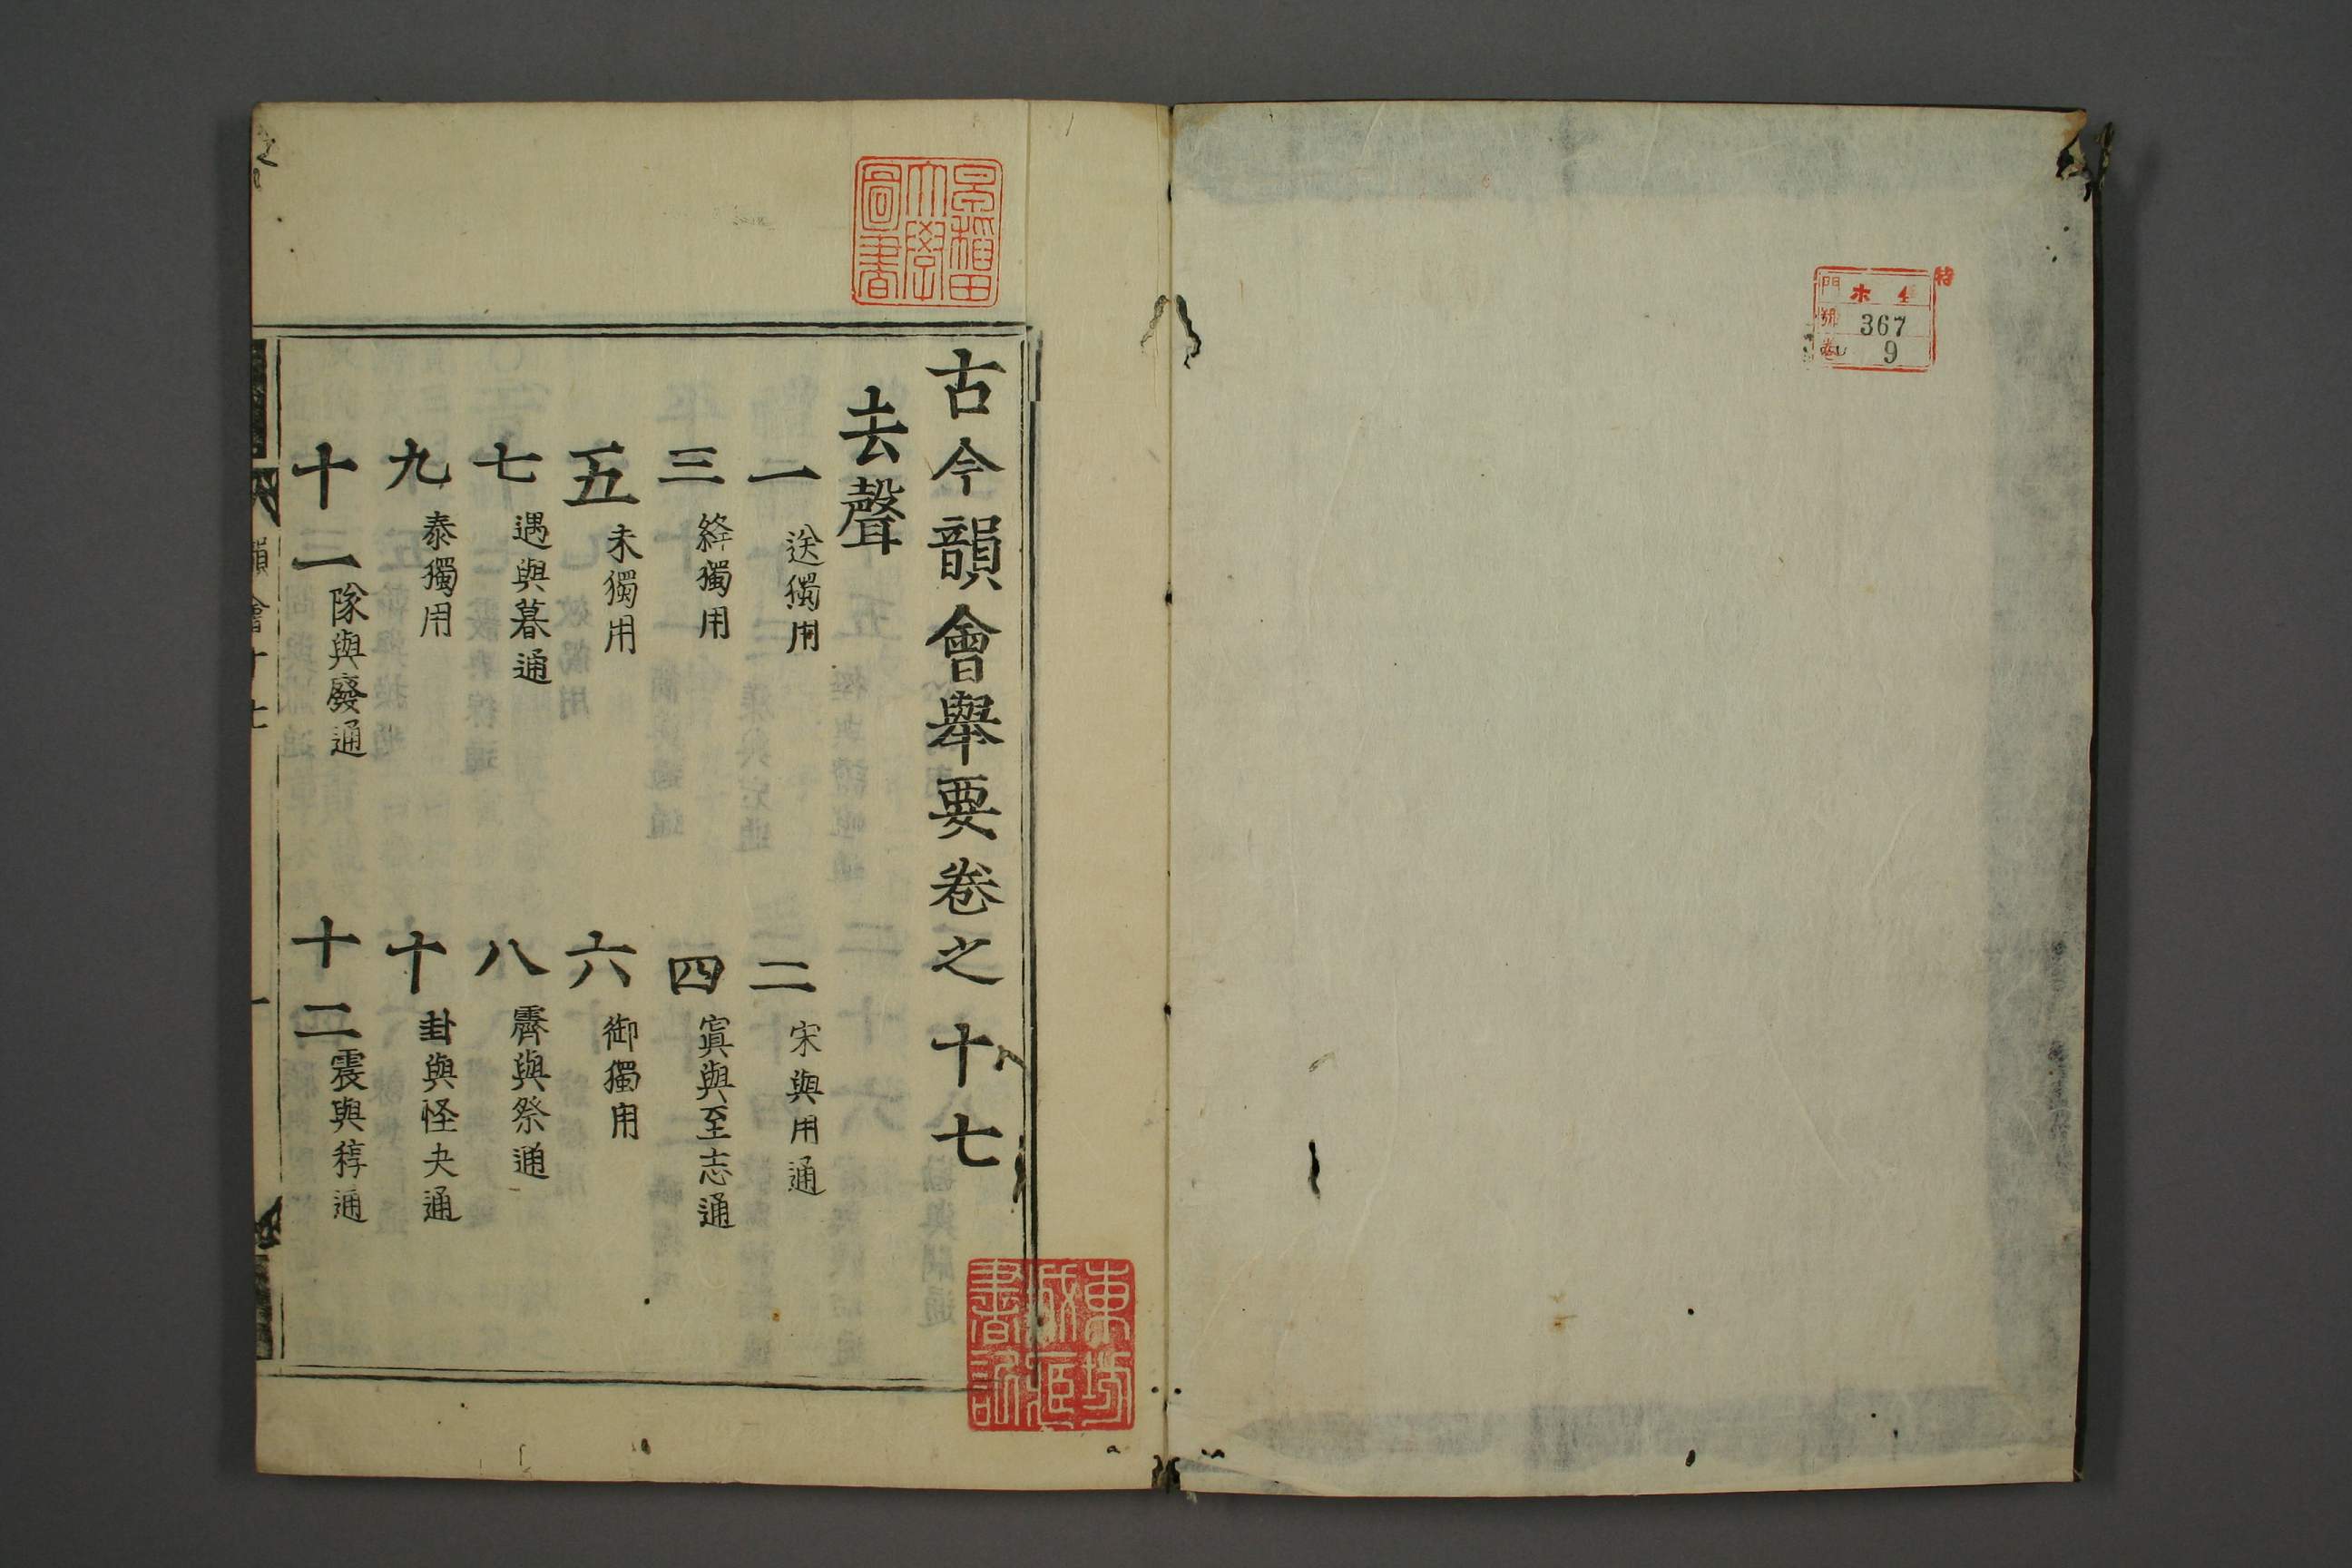 特
門 ホ 4
號 367
卷 9
早稲田大學圖書
古今韻會舉要卷之十七
去聲
一 送獨用 二 宋與用通
三 絳獨用 四 寘與至志通
五 未獨用 六 御獨用
七 遇與暮通 八 霽與祭通
九 泰獨用 十 卦與怪夬通
十一 隊與廢通 十二 震與稕通
韻會十七 一